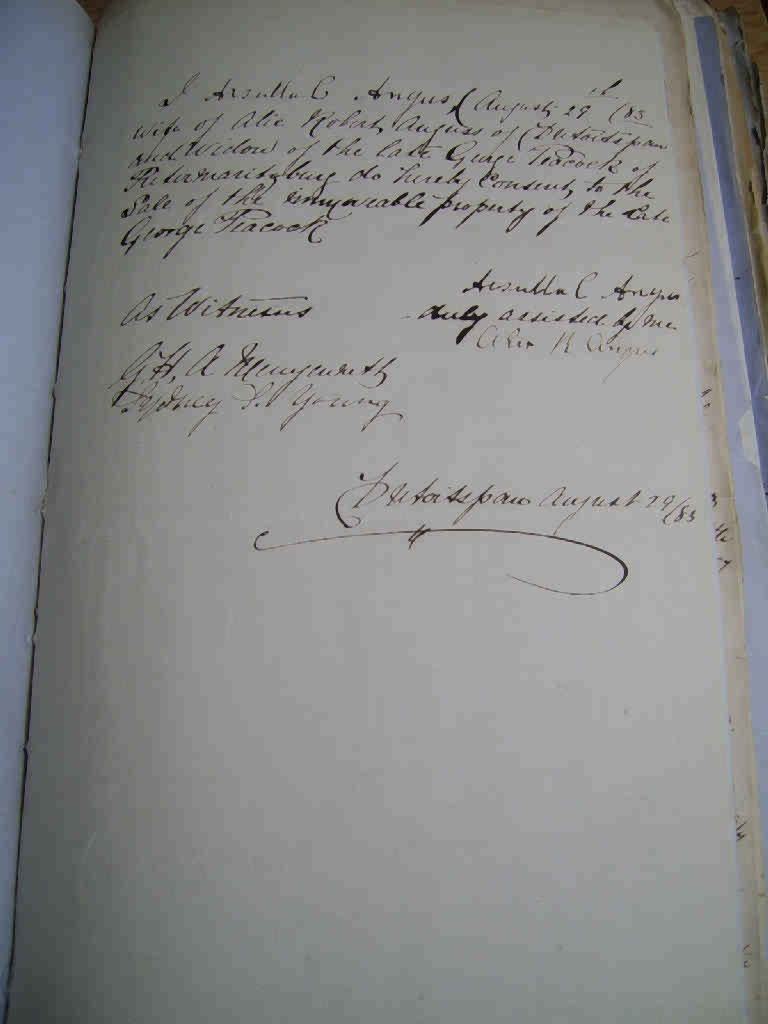 I Arsulla C Angus, August 29th /83
wife of Alix Robert Anguss of Dutoitspan
and Widow of the late George Peacock of
Pietermaritzburg do hereby Consent, to the
Sale of the immoveable property of the Late
George Peacock
Arsulla C Angus
As Witnesses
duly assisted by me
Alex R Angus
G. H. A
Sydney S. Young
Dutoitspan August 29/83